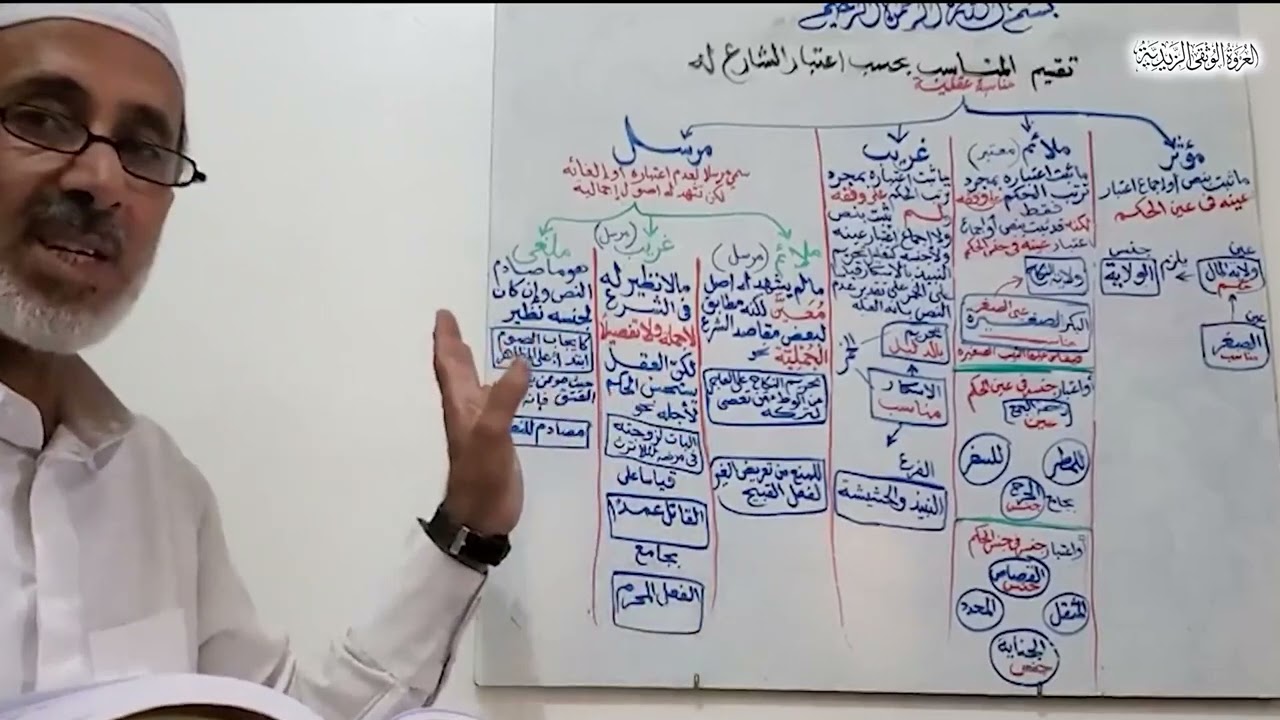 بسم الله الرحمن الرحيم
العروة الوثقى الزيدية
تقيم المناسب بحسب اعتبار الشارع له
مناسبة عقلية
مؤثر
ما ثبت بنص أو إجماع اعتبار
عينه في عين الحكم
عين
ولاية المال
حكم
يلزم
جنس
الولاية
عين
الصغر
مناسب
ملائم (معتبر)
ما ثبت اعتباره بمجرد
ترتب الحكم على وفقه
فقط
لكنه قد ثبت بنص أو إجماع
اعتبار عينه في جنس الحكم
ولاية النكاح
على الصغر
البكر الصغيرة
مناسب
قياس عليها الثيب الصغيرة
أو اعتبار جنسه في عين الحكم
رخصة الجمع
عين
للمطر
للسفر
بجامع
الحرج
جنس
أو اعتبار جنس في جنس الحكم
القصاص
جنس
المثقل
المحدد
الجناية
جنس
غريب
ما ثبت اعتباره بمجرد
ترتب الحكم على وفقه
ولم يثبت بنص
ولا إجماع اعتبار عينه
ولا جنسه كتعليل تحريم
النبيذ بالإسكار قياسا
على الخمر على تقدير عدم
النص بأنه العلة
تحريم
بالدليل
الخمر
الاسكار
مناسب
الفرع
النبيذ والحشيشة
مرسل
سمي مرسلا لعدم اعتباره أو إلغائه
لكن تشهد له أصول إجمالية
ملائم (مرسل)
ما لم يشهد له أصل
معين لكنه مطابق
لبعض مقاصد الشرع
الجملية نحو
تحريم النكاح على العاجز
عن الوطء من تعصي
لتركه
للمنع من تعريض الغير
لفعل القبيح
غريب (مرسل)
ما لا نظير له
في الشرع
لا جملة ولا تفصيلا
لكن العقل
يستحسن الحكم
لأجله نحو
البات لزوجته
في مرضه لئلا ترث
قياسا على
القاتل عمدا
بجامع
الفعل المحرم
ملغى
هو ما صادم
النص وإن كان
لجنسه نظير
كإيجاب الصوم
ابتداء على المظاهر
حيث هو ممن
العتق فإنه
مصادم للنص